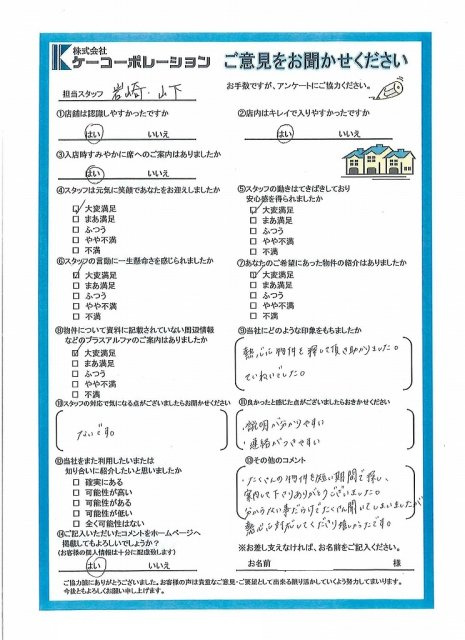 株式会社
ケーコーポレーション
ご意見をお聞かせください
担当スタッフ 岩崎・山下
お手数ですが、アンケートにご協力ください。
①店舗は認識しやすかったですか
はい いいえ
②店内はキレイで入りやすかったですか
はい いいえ
③入店時すみやかに席へのご案内はありましたか
はい いいえ
④スタッフは元気に笑顔であなたをお迎えしましたか
大変満足
まあ満足
ふつう
やや不満
不満
⑤スタッフの動きはてきぱきしており
安心感を得られましたか
大変満足
まあ満足
ふつう
やや不満
不満
⑥スタッフの言動に一生懸命さを感じられましたか
大変満足
まあ満足
ふつう
やや不満
不満
⑦あなたのご希望にあった物件の紹介はありましたか
大変満足
まあ満足
ふつう
やや不満
不満
⑧物件について資料に記載されていない周辺情報
などのプラスアルファのご案内はありましたか
大変満足
まあ満足
ふつう
やや不満
不満
⑨当社にどのような印象をもちましたか
熱心に物件を探して頂き助かりました。
ていねいでした。
⑩スタッフの対応で気になる点がございましたらお聞かせください
ないです。
⑪良かったと感じた点がございましたらおきかせください
・説明が分かりやすい
・連絡がつきやすい
⑫当社をまた利用したいまたは
知り合いに紹介したいと思いましたか
確実にある
可能性が高い
可能性がある
可能性が低い
全く可能性はない
⑬その他のコメント
・たくさんの物件を短い期間で探し、
案内して下さりありがとうございました。
分からない事だらけでたくさん聞いてしまいましたが
熱心に対応してくださり嬉しかったです。
⑭ご記入いただいたコメントをホームページへ
掲載してもよろしいでしょうか?
(お客様の個人情報は十分に配慮致します)
はい いいえ
※お差し支えなければ、お名前をご記入ください。
お名前 様
ご協力誠にありがとうございました。お客様の声は貴重なご意見・ご要望として出来る限り活かしていくよう努力してまいります。
今後ともよろしくお願い申し上げます。